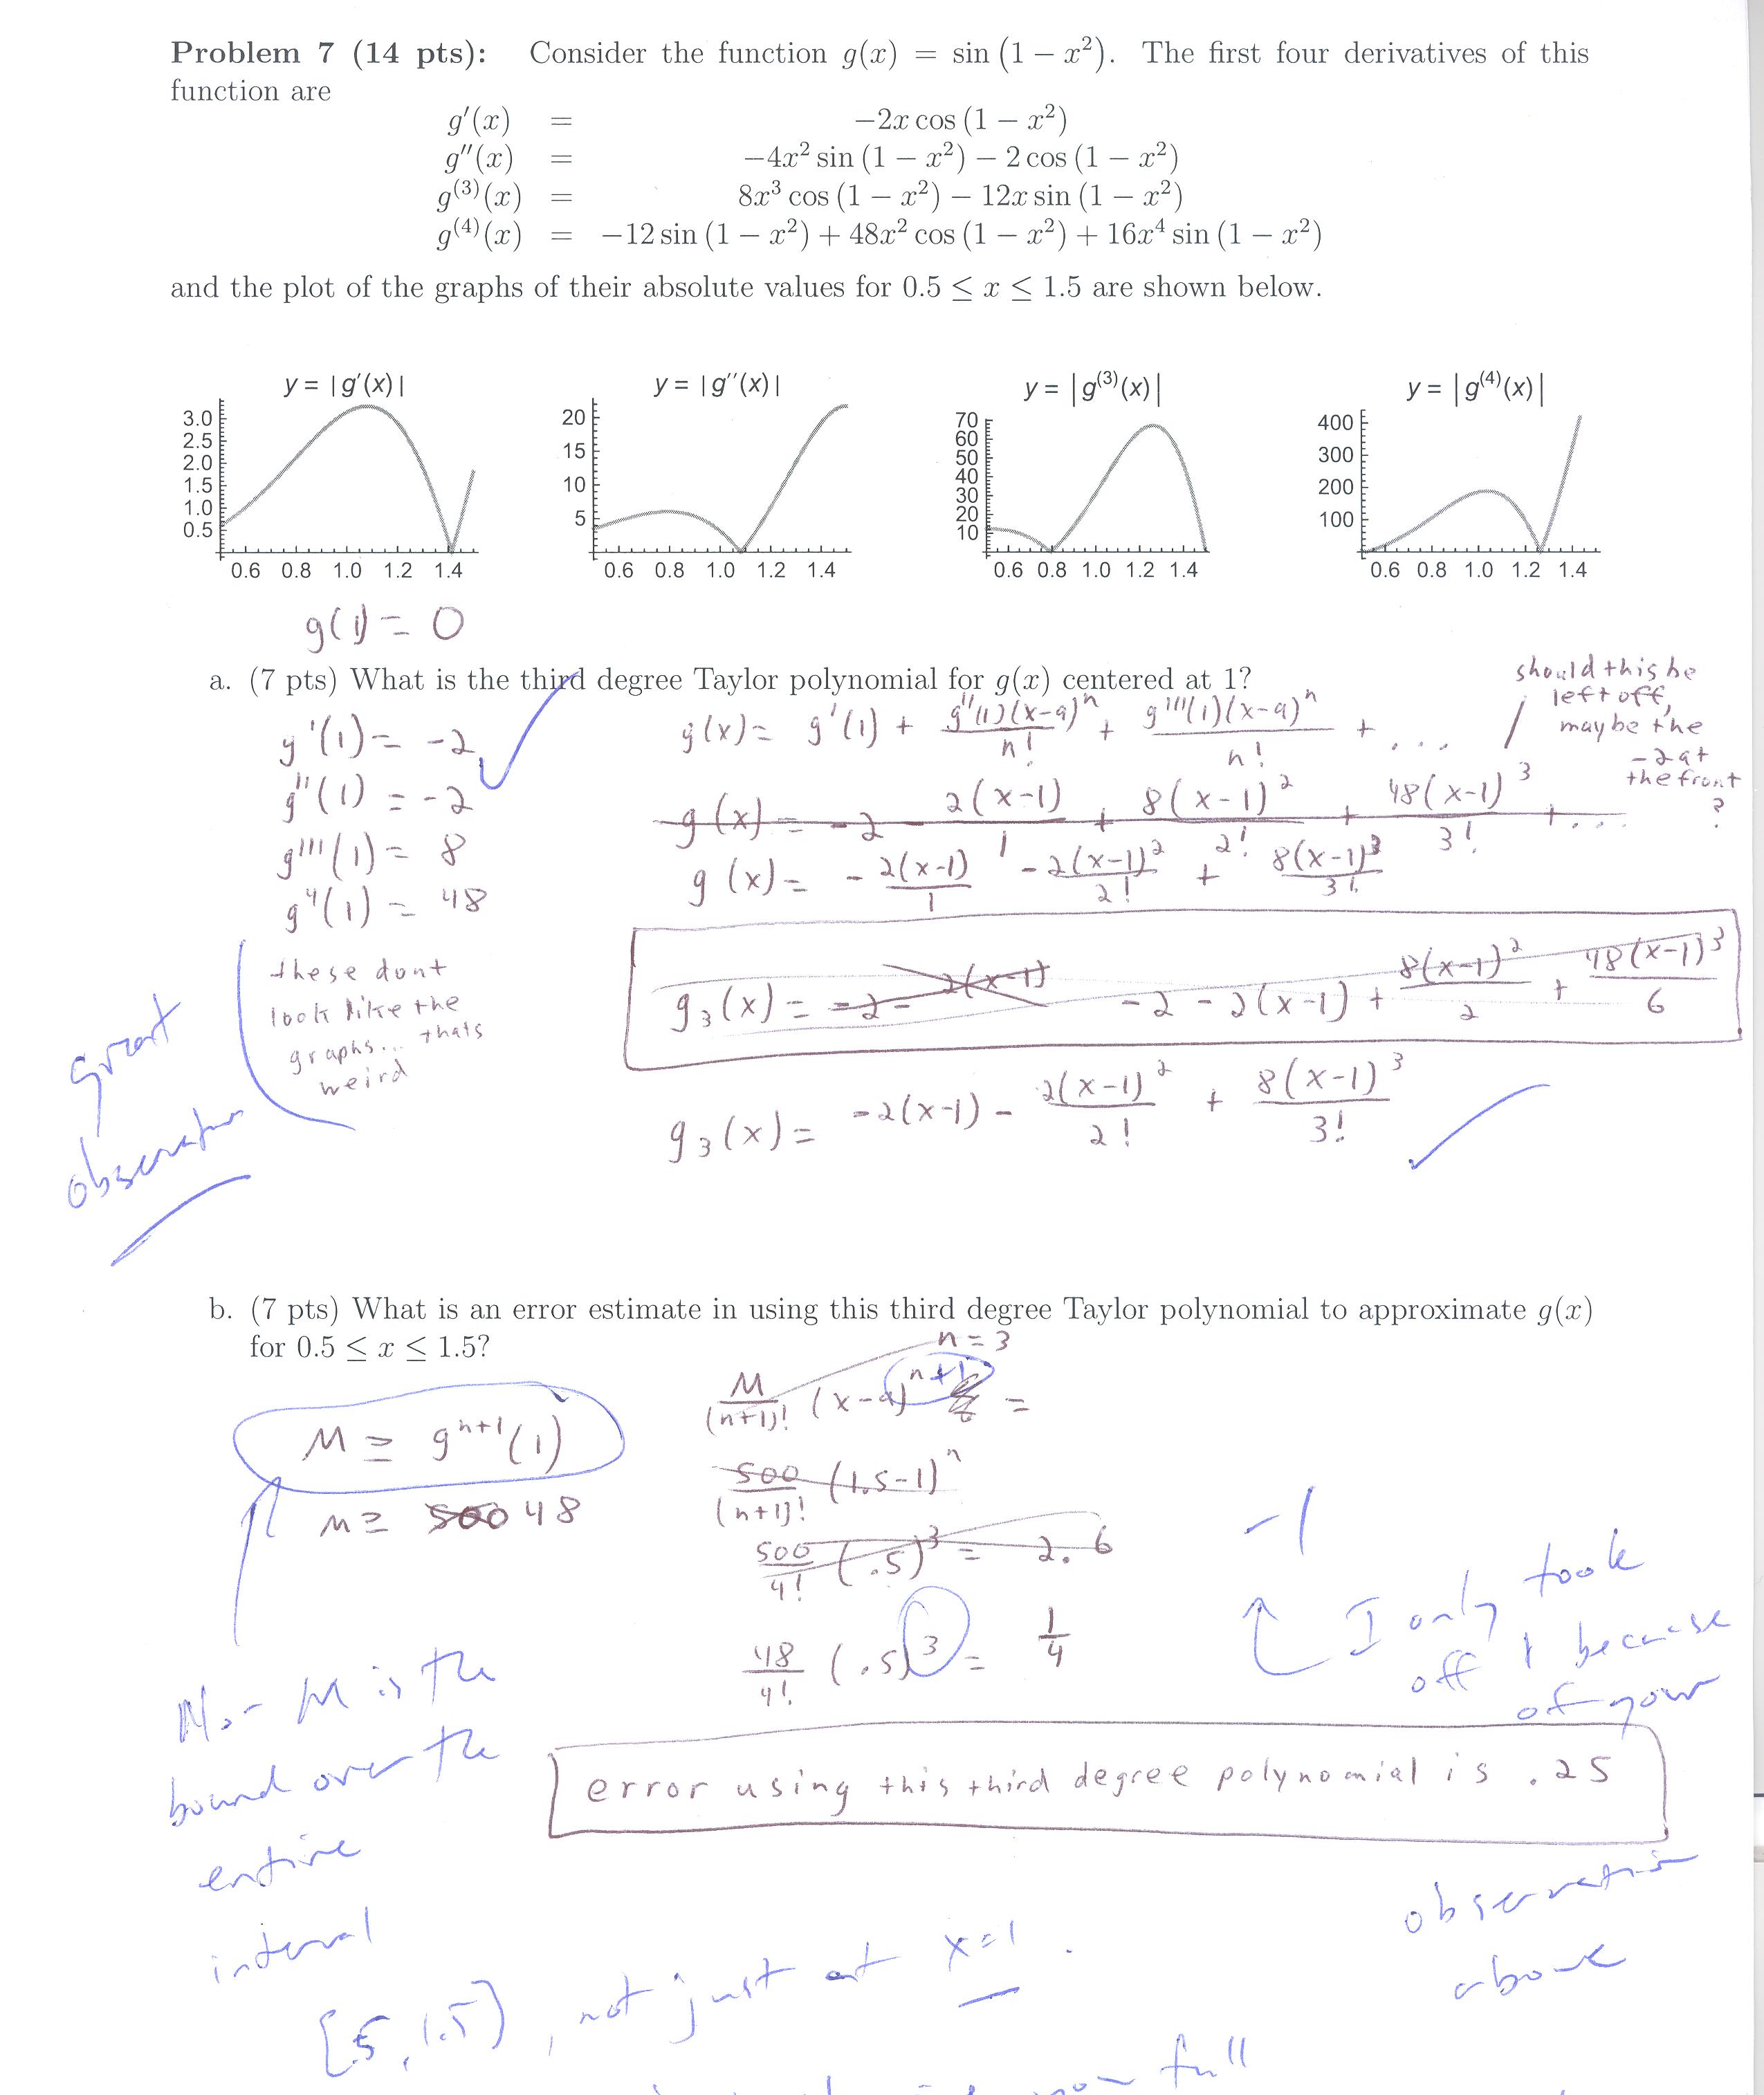 Problem 7 (14 pts): Consider the function g(x) = sin (1 − x²). The first four derivatives of this
function are
g′(x) = −2x cos (1 − x²)
g″(x) = −4x² sin (1 − x²) − 2 cos (1 − x²)
g⁽³⁾(x) = 8x³ cos (1 − x²) − 12x sin (1 − x²)
g⁽⁴⁾(x) = −12 sin (1 − x²) + 48x² cos (1 − x²) + 16x⁴ sin (1 − x²)
and the plot of the graphs of their absolute values for 0.5 ≤ x ≤ 1.5 are shown below.
y = |g′(x)|
3.0
2.5
2.0
1.5
1.0
0.5
0.6 0.8 1.0 1.2 1.4
y = |g″(x)|
20
15
10
5
0.6 0.8 1.0 1.2 1.4
y = |g⁽³⁾(x)|
70
60
50
40
30
20
10
0.6 0.8 1.0 1.2 1.4
y = |g⁽⁴⁾(x)|
400
300
200
100
0.6 0.8 1.0 1.2 1.4
g(1) = 0
a. (7 pts) What is the third degree Taylor polynomial for g(x) centered at 1?
g'(1) = -2
g''(1) = -2
g'''(1) = 8
g⁴(1) = 48
these dont
look like the
graphs... thats
weird
great
observation
g(x) = g'(1) + g''(1)(x-a)ⁿ/n! + g'''(1)(x-a)ⁿ/n! + ...
should this be
left off,
maybe the
-2 at
the front
?
g(x) = -2 - 2(x-1)/1 + 8(x-1)²/2! + 48(x-1)³/3! + ...
g(x) = - 2(x-1)/1 - 2(x-1)²/2! + 8(x-1)³/3!
g₃(x) = -2 - 2(x-1) -2 - 2(x-1) + 8(x-1)²/2 + 48(x-1)³/6
g₃(x) = -2(x-1) - 2(x-1)²/2! + 8(x-1)³/3!
b. (7 pts) What is an error estimate in using this third degree Taylor polynomial to approximate g(x)
for 0.5 ≤ x ≤ 1.5?
n = 3
M ≥ gⁿ⁺¹(1)
M ≥ 500 48
M/(n+1)! (x-a)ⁿ⁺¹ =
500/(n+1)! (1.5-1)ⁿ
500/4! (.5)³ = 2.6
48/4! (.5)³ = 1/4
-1
I only took
off 1 because
of your
error using this third degree polynomial is .25
observation
above
No - M is the
bound over the
entire
interval
[.5, 1.5], not just at x=1.
full